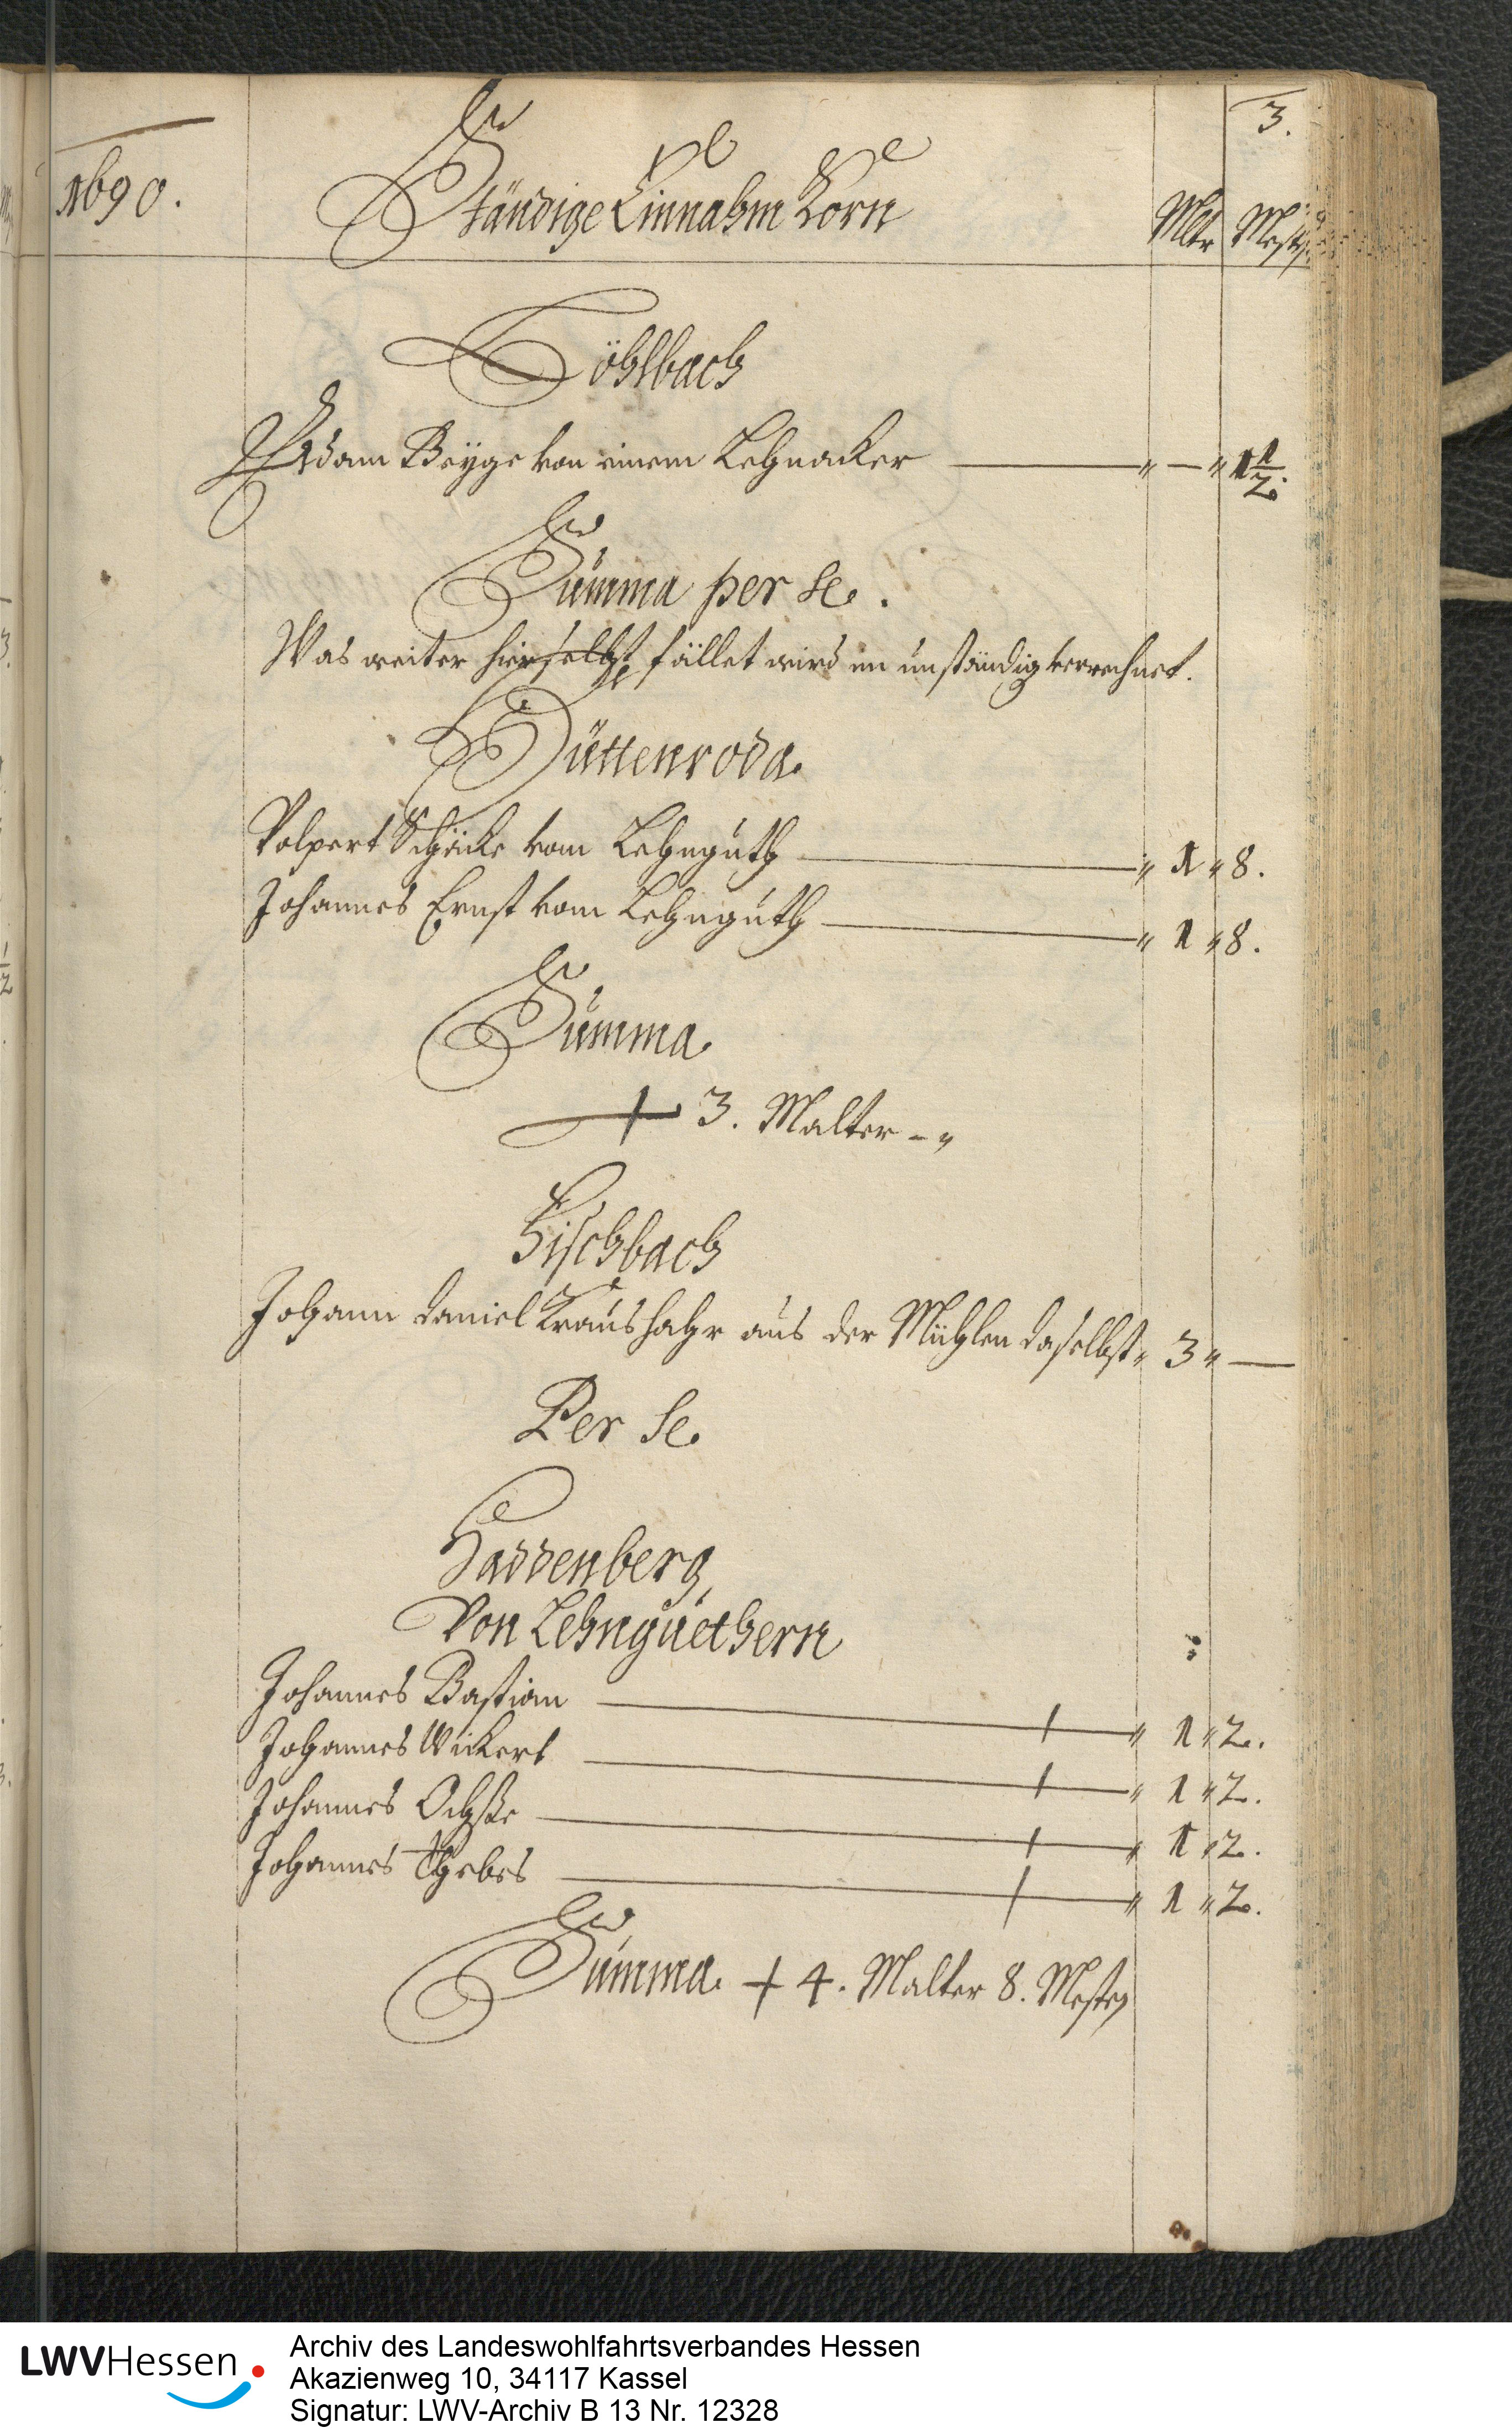 3.
1690.
Ständige Einnahm Korn
Mltr Mestz
Löhlbach
Adam Beyge von einem Lehnacker — " — " 1 1/2.
Summa per se.
Was weiter hierselbst fället wird im unständig verrechnet.
Hüttenroda.
Volpert Schöcke vom Lehnguth — " 1 " 8.
Johannes Ernst vom Lehnguth — " 1 " 8.
Summa
3. Malter - "
Fischbach
Johann Daniel Kraushahr aus der Mühlen daselbst " 3 " —
Per Se.
Haddenberg,
Von Lehnguethern
Johannes Bastian — " 1 " 2.
Johannes Wickert — " 1 " 2.
Johannes — " 1 " 2.
Johannes Thebes — " 1 " 2.
Summa. + 4. Malter 8. Mesten
LWVHessen
Archiv des Landeswohlfahrtsverbandes Hessen
Akazienweg 10, 34117 Kassel
Signatur: LWV-Archiv B 13 Nr. 12328